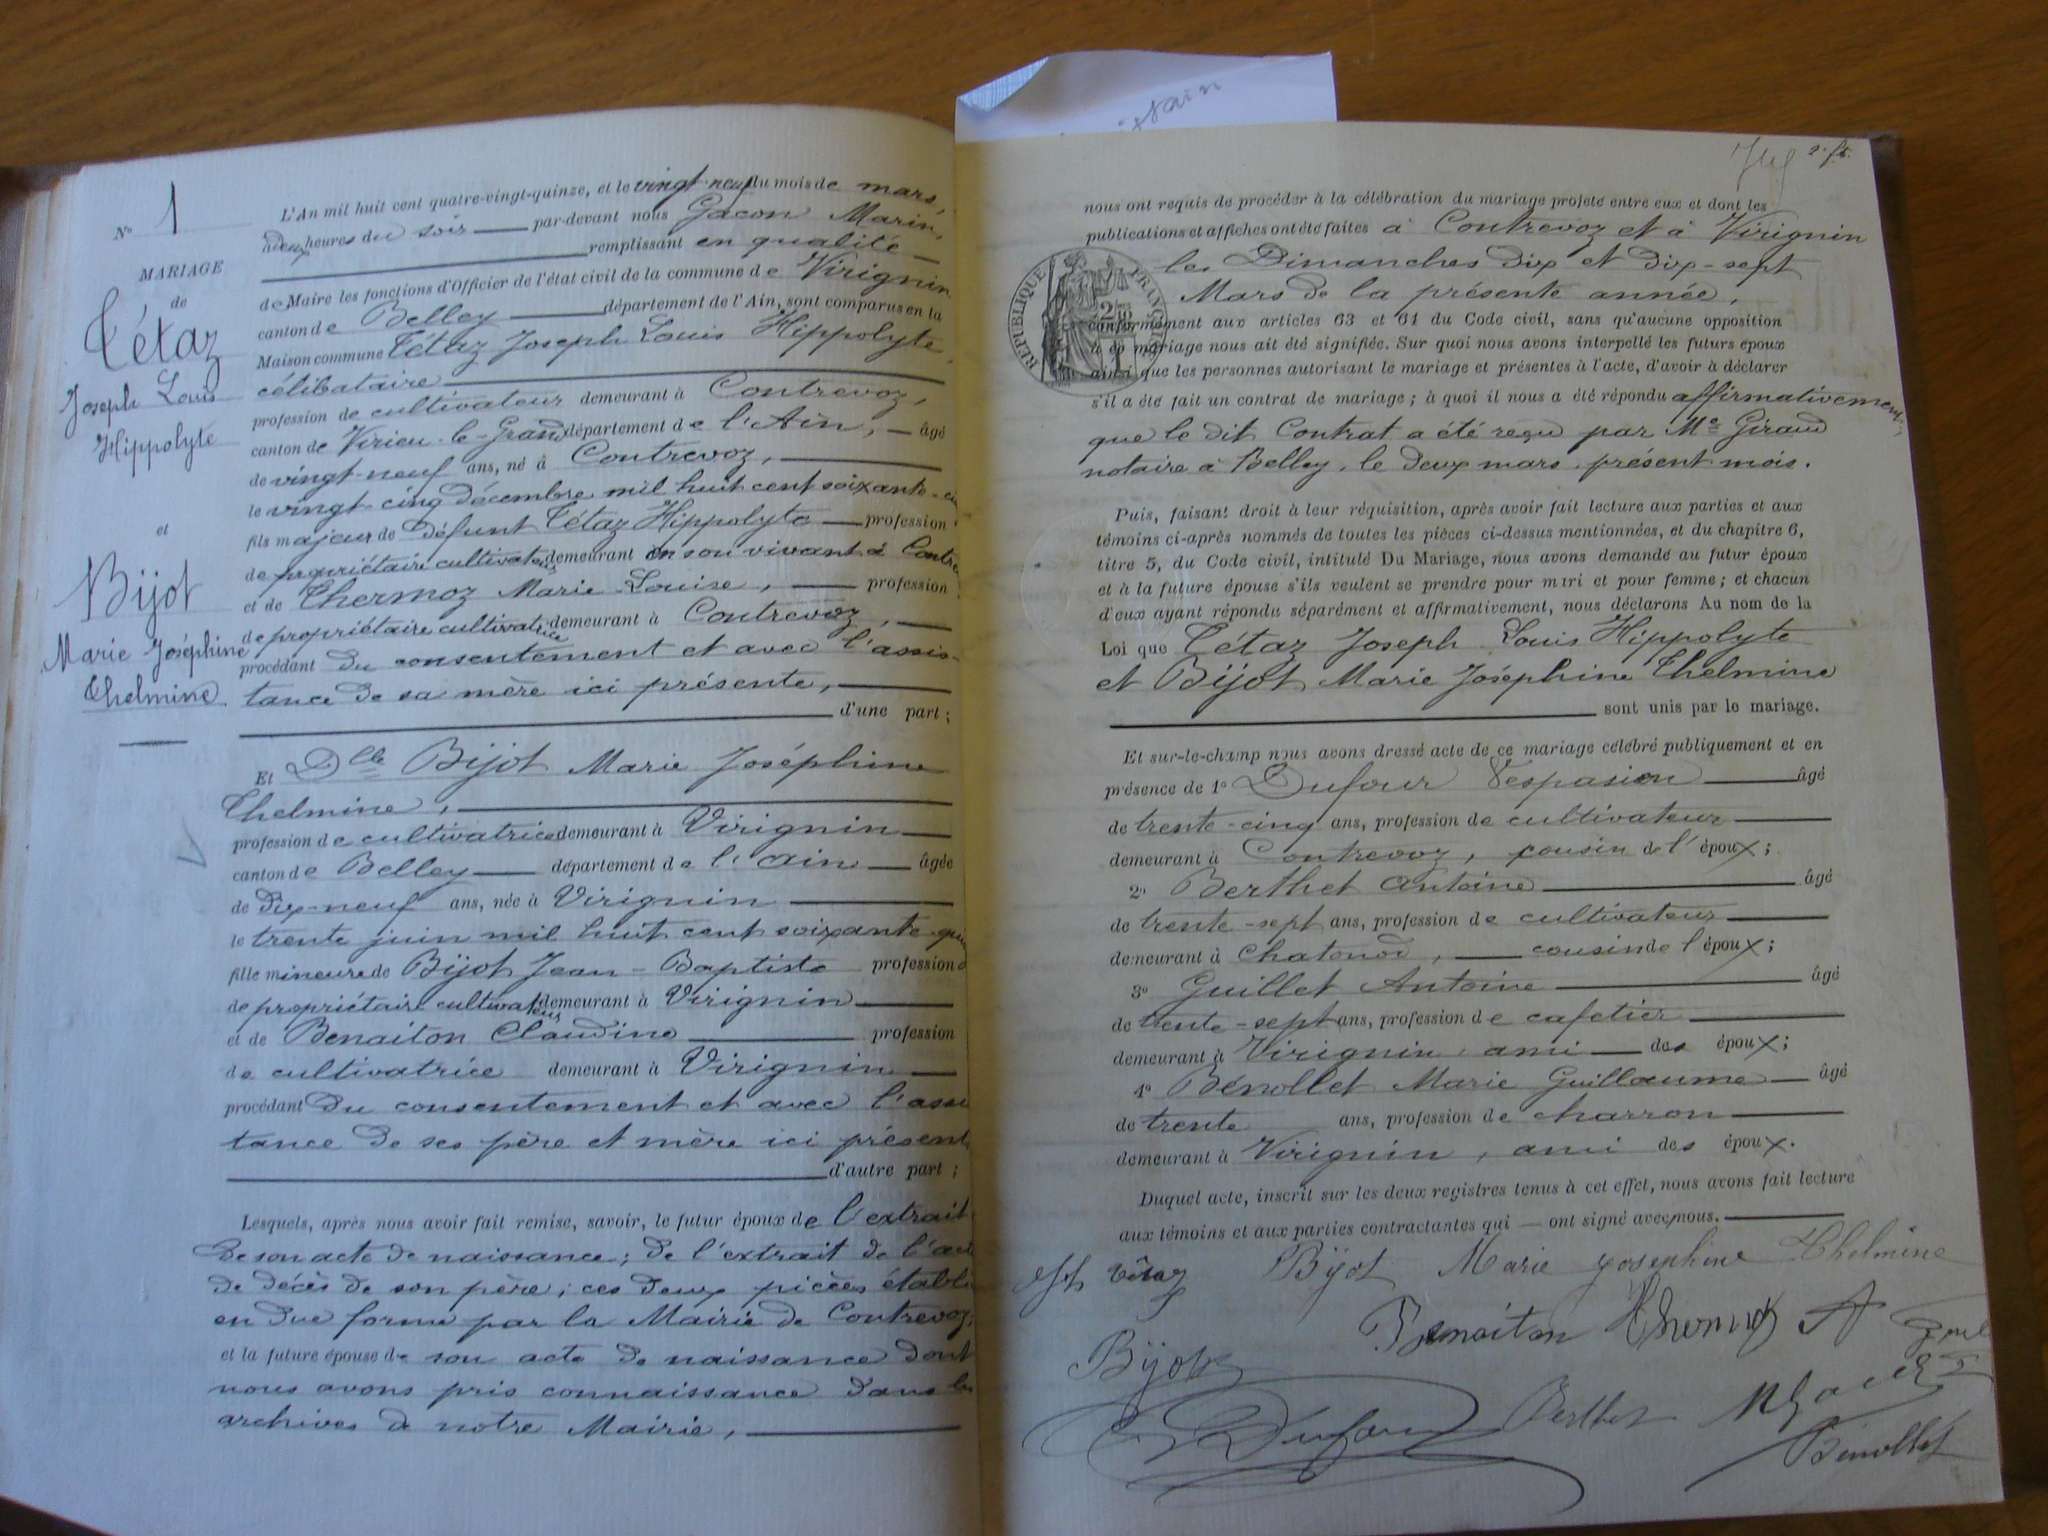 Nº 1
MARIAGE
de
Tétaz
Joseph Louis
Hippolyte
et
Bijot
Marie Joséphine
Thelmine
L'An mil huit cent quatre-vingt-quinze, et le vingt-neuf du mois de mars,
à deux heures du soir par-devant nous Gacon Marin,
remplissant en qualité
de Maire les fonctions d'Officier de l'état civil de la commune de Virignin
canton de Belley département de l'Ain, sont comparus en la
Maison commune Tétaz Joseph Louis Hippolyte,
célibataire
profession de cultivateur demeurant à Contrevoz,
canton de Virieu-le-Grand département de l'Ain, âgé
de vingt-neuf ans, né à Contrevoz,
le vingt-cinq décembre mil huit cent soixante-
fils majeur de Défunt Tétaz Hippolyte profession
de propriétaire cultivateur demeurant en son vivant à Contre
et de Thermoz Marie Louise, profession
de propriétaire cultivatrice demeurant à Contrevoz,
procédant du consentement et avec l'assis-
tance de sa mère ici présente,
d'une part;
Et Dlle Bijot Marie Joséphine
Thelmine,
profession de cultivatrice demeurant à Virignin
canton de Belley département de l'Ain âgée
de dix-neuf ans, née à Virignin
le trente juin mil huit cent soixante-qui
fille mineure de Bijot Jean-Baptiste profession
de propriétaire cultivateur demeurant à Virignin
et de Benaiton Claudine profession
de cultivatrice demeurant à Virignin
procédant du consentement et avec l'assi
tance de ses père et mère ici présent
d'autre part;
Lesquels, après nous avoir fait remise, savoir, le futur époux de l'extrait
de son acte de naissance; de l'extrait de l'acte
de décès de son père; ces deux pièces établi
en due forme par la Mairie de Contrevoz;
et la future épouse de son acte de naissance dont
nous avons pris connaissance dans les
archives de notre Mairie,
2. ft.
nous ont requis de procéder à la célébration du mariage projeté entre eux et dont les
publications et affiches ont été faites à Contrevoz et à Virignin
les Dimanches dix et dix-sept
Mars de la présente année,
RÉPUBLIQUE FRANÇAISE
conformément aux articles 63 et 64 du Code civil, sans qu'aucune opposition
à ce mariage nous ait été signifiée. Sur quoi nous avons interpellé les futurs époux
ainsi que les personnes autorisant le mariage et présentes à l'acte, d'avoir à déclarer
s'il a été fait un contrat de mariage; à quoi il nous a été répondu affirmativement,
que le dit Contrat a été reçu par Me Giraud
notaire à Belley, le deux mars, présent mois.
Puis, faisant droit à leur réquisition, après avoir fait lecture aux parties et aux
témoins ci-après nommés de toutes les pièces ci-dessus mentionnées, et du chapitre 6,
titre 5, du Code civil, intitulé Du Mariage, nous avons demandé au futur époux
et à la future épouse s'ils veulent se prendre pour mari et pour femme; et chacun
d'eux ayant répondu séparément et affirmativement, nous déclarons Au nom de la
Loi que Tétaz Joseph Louis Hippolyte
et Bijot Marie Joséphine Thelmine
sont unis par le mariage.
Et sur-le-champ nous avons dressé acte de ce mariage célébré publiquement et en
présence de 1º Dufour Vespasien âgé
de trente-cinq ans, profession de cultivateur
demeurant à Contrevoz, cousin de l'époux;
2º Berthet Antoine âgé
de trente-sept ans, profession de cultivateur
demeurant à Chatonod, cousin de l'époux;
3º Guillet Antoine âgé
de trente-sept ans, profession de cafetier
demeurant à Virignin, ami des époux;
4º Bénollet Marie Guillaume âgé
de trente ans, profession de charron
demeurant à Virignin, ami des époux.
Duquel acte, inscrit sur les deux registres tenus à cet effet, nous avons fait lecture
aux témoins et aux parties contractantes qui ont signé avec nous.
Tétaz Bijot Marie Josephine Thelmine
Benaiton Thermoz A
Bijot
Dufour Berthet
Bénollet